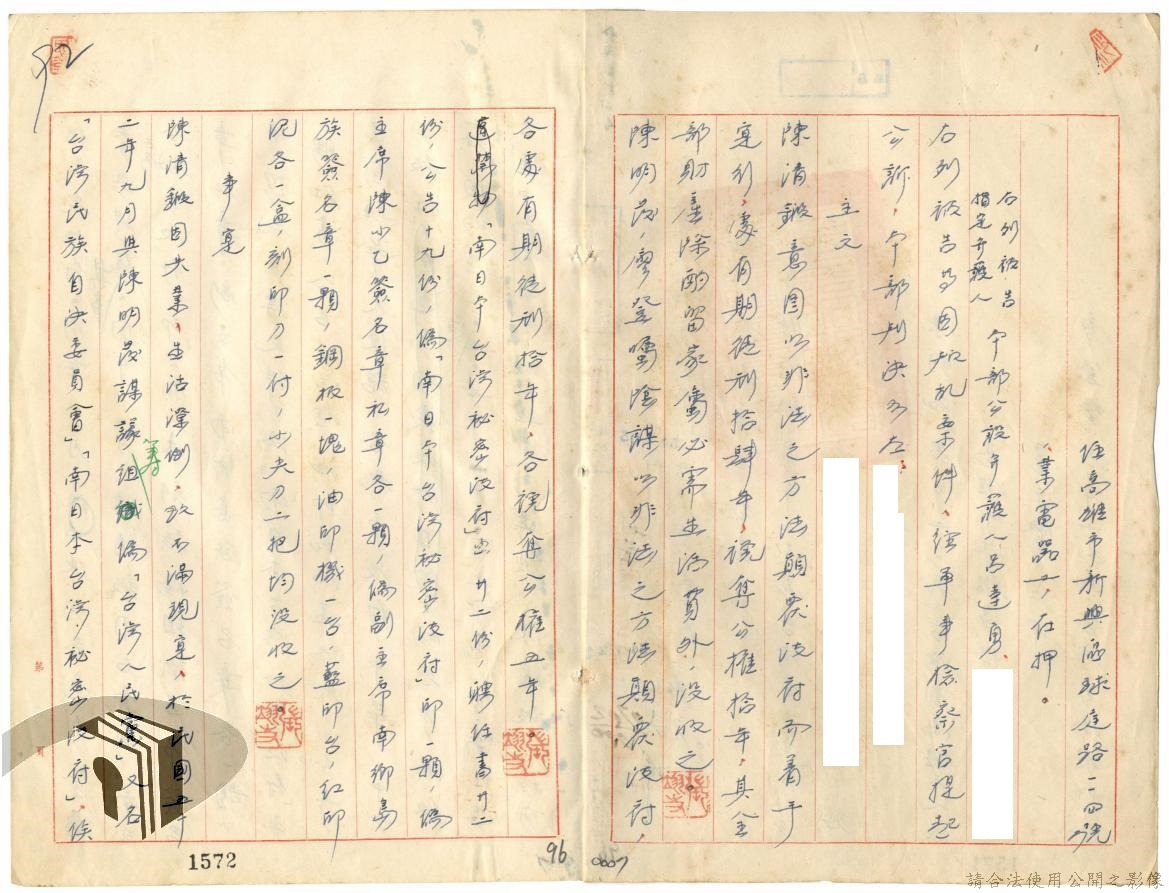 住高雄市新興區球庭路一一四號
業電器工,在押。
右列被告
指定弁護人 本部公設弁護人呂達勇
右列被告等因叛乱案件,經軍事檢察官提起
公訴,本部判決如左:
主文
陳清鍛意圖以非法之方法顛覆政府而着手
実行,處有期徒刑拾肆年,褫奪公權拾年,其全
部財產除酌留家屬必需生活費外,没收之。
陳明茂,廖登囑陰謀以非法之方法顛覆政府,
各處有期徒刑拾年,各褫奪公權五年。
「南日本台湾秘密政府」 廿二份,聘任書廿二
份,公告十九份,偽「南日本台湾秘密政府」印一顆,偽
主席陳小乙簽名章私章各一顆,偽副主席南鄉島
族簽名章一顆,鋼板一塊,油印機一台,藍印台,紅印
泥各一盒,刻印刀一付,小夾刀二把均没收之。
事実
陳清鍛因失業,生活潦倒,致不滿現実,於民國五十
二年九月與陳明茂謀議籌組偽「台湾人民 」又名
「台湾民族自決委員會」「南日本台湾秘密政府」,俟
92
1572
96
0007
請合法使用公開之影像